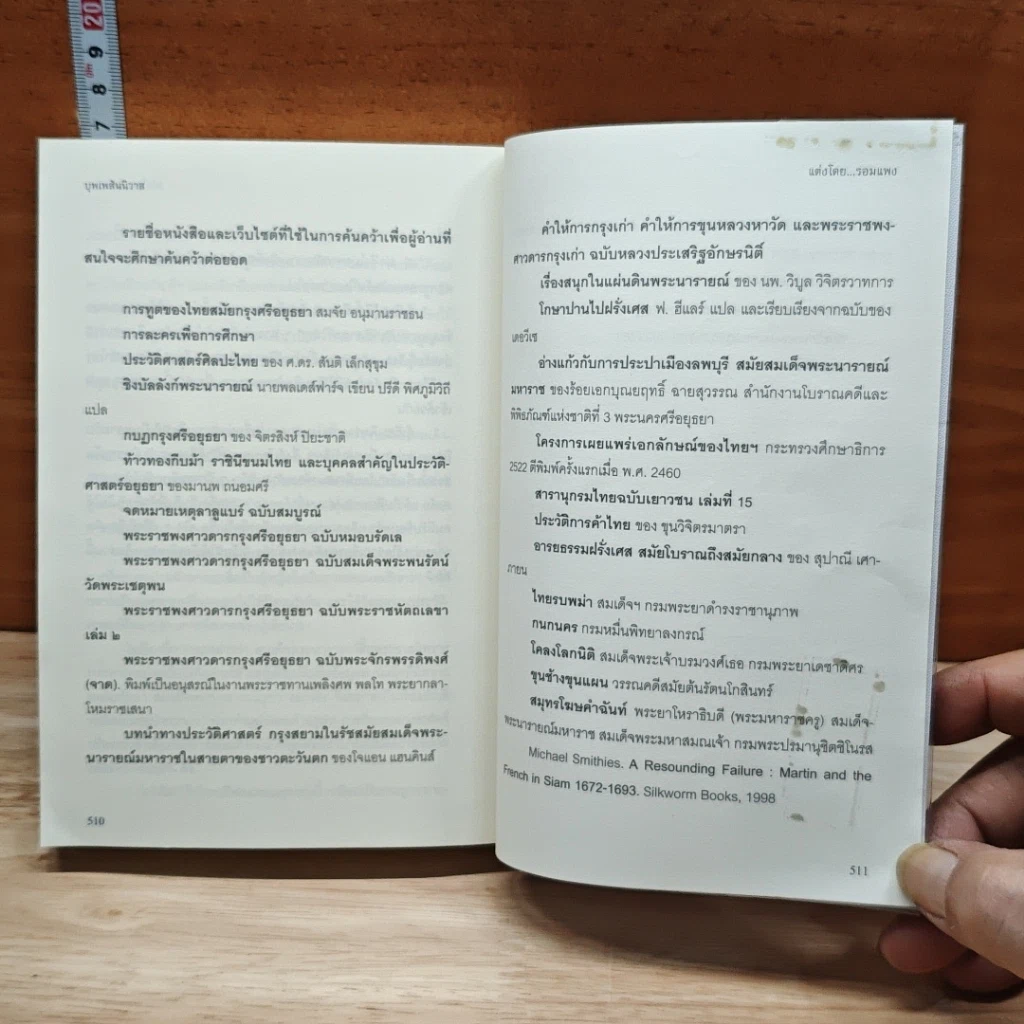 20
นิ้ว 9
8
7
บุพเพสันนิวาส
รายชื่อหนังสือและเว็บไซต์ที่ใช้ในการค้นคว้าเพื่อผู้อ่านที่
สนใจจะศึกษาค้นคว้าต่อยอด
การทูตของไทยสมัยกรุงศรีอยุธยา สมจัย อนุมานราชธน
การละครเพื่อการศึกษา
ประวัติศาสตร์ศิลปะไทย ของ ศ.ดร. สันติ เล็กสุขุม
ชิงบัลลังก์พระนารายณ์ นายพลเดส์ฟาร์จ เขียน ปรีดี พิศภูมิวิถี
แปล
กบฏกรุงศรีอยุธยา ของ จิตรสิงห์ ปิยะชาติ
ท้าวทองกีบม้า ราชินีขนมไทย และบุคคลสำคัญในประวัติ-
ศาสตร์อยุธยา ของมานพ ถนอมศรี
จดหมายเหตุลาลูแบร์ ฉบับสมบูรณ์
พระราชพงศาวดารกรุงศรีอยุธยา ฉบับหมอบรัดเล
พระราชพงศาวดารกรุงศรีอยุธยา ฉบับสมเด็จพระพนรัตน์
วัดพระเชตุพน
พระราชพงศาวดารกรุงศรีอยุธยา ฉบับพระราชหัตถเลขา
เล่ม ๒
พระราชพงศาวดารกรุงศรีอยุธยา ฉบับพระจักรพรรดิพงศ์
(จาด). พิมพ์เป็นอนุสรณ์ในงานพระราชทานเพลิงศพ พลโท พระยากลา-
โหมราชเสนา
บทนำทางประวัติศาสตร์ กรุงสยามในรัชสมัยสมเด็จพระ-
นารายณ์มหาราชในสายตาของชาวตะวันตก ของโจแอน แฮนดินส์
510
แต่งโดย...รอมแพง
คำให้การกรุงเก่า คำให้การขุนหลวงหาวัด และพระราชพง-
ศาวดารกรุงเก่า ฉบับหลวงประเสริฐอักษรนิติ์
เรื่องสนุกในแผ่นดินพระนารายณ์ ของ นพ. วิบูล วิจิตรวาทการ
โกษาปานไปฝรั่งเศส ฟ. ฮีแลร์ แปล และเรียบเรียงจากฉบับของ
เดอวีเซ
อ่างแก้วกับการประปาเมืองลพบุรี สมัยสมเด็จพระนารายณ์
มหาราช ของร้อยเอกบุณยฤทธิ์ ฉายสุวรรณ สำนักงานโบราณคดีและ
พิพิธภัณฑ์แห่งชาติที่ 3 พระนครศรีอยุธยา
โครงการเผยแพร่เอกลักษณ์ของไทยฯ กระทรวงศึกษาธิการ
2522 ตีพิมพ์ครั้งแรกเมื่อ พ.ศ. 2460
สารานุกรมไทยฉบับเยาวชน เล่มที่ 15
ประวัติการค้าไทย ของ ขุนวิจิตรมาตรา
อารยธรรมฝรั่งเศส สมัยโบราณถึงสมัยกลาง ของ สุปาณี เศา-
ภายน
ไทยรบพม่า สมเด็จฯ กรมพระยาดำรงราชานุภาพ
กนกนคร กรมหมื่นพิทยาลงกรณ์
โคลงโลกนิติ สมเด็จพระเจ้าบรมวงศ์เธอ กรมพระยาเดชาดิศร
ขุนช้างขุนแผน วรรณคดีสมัยต้นรัตนโกสินทร์
สมุทรโฆษคำฉันท์ พระยาโหราธิบดี (พระมหาราชครู) สมเด็จ-
พระนารายณ์มหาราช สมเด็จพระมหาสมณเจ้า กรมพระปรมานุชิตชิโนรส
Michael Smithies. A Resounding Failure : Martin and the
French in Siam 1672-1693. Silkworm Books, 1998
511